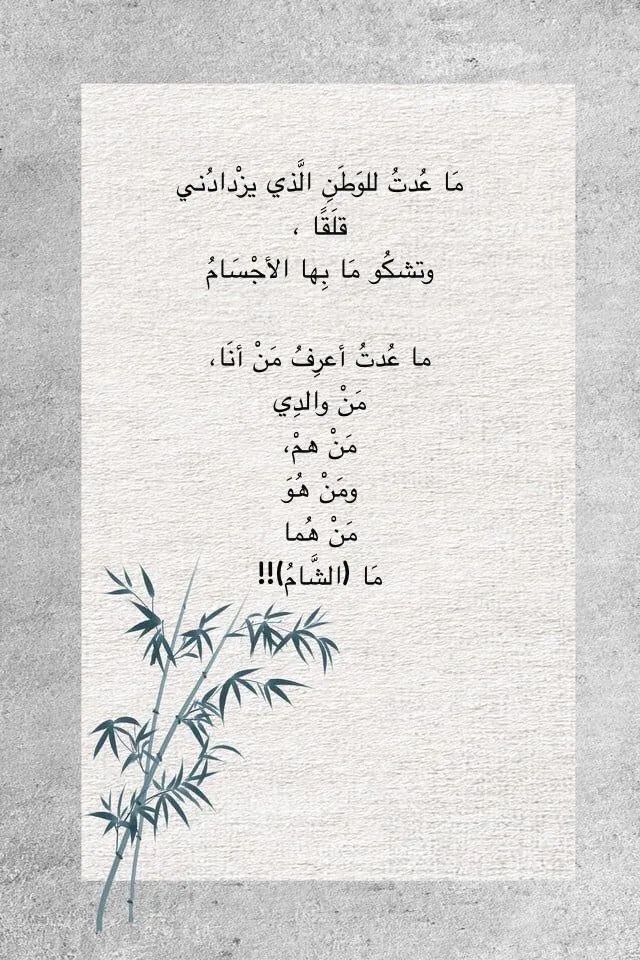 مَا عُدتُ للوَطَنِ الَّذي يزْدادُني
قلَقًا ،
وتشكُو مَا بِها الأجْسَامُ
ما عُدتُ أعرِفُ مَنْ أنَا،
مَنْ والدِي
مَنْ همْ،
ومَنْ هُوَ
مَنْ هُما
مَا (الشَّامُ)!!